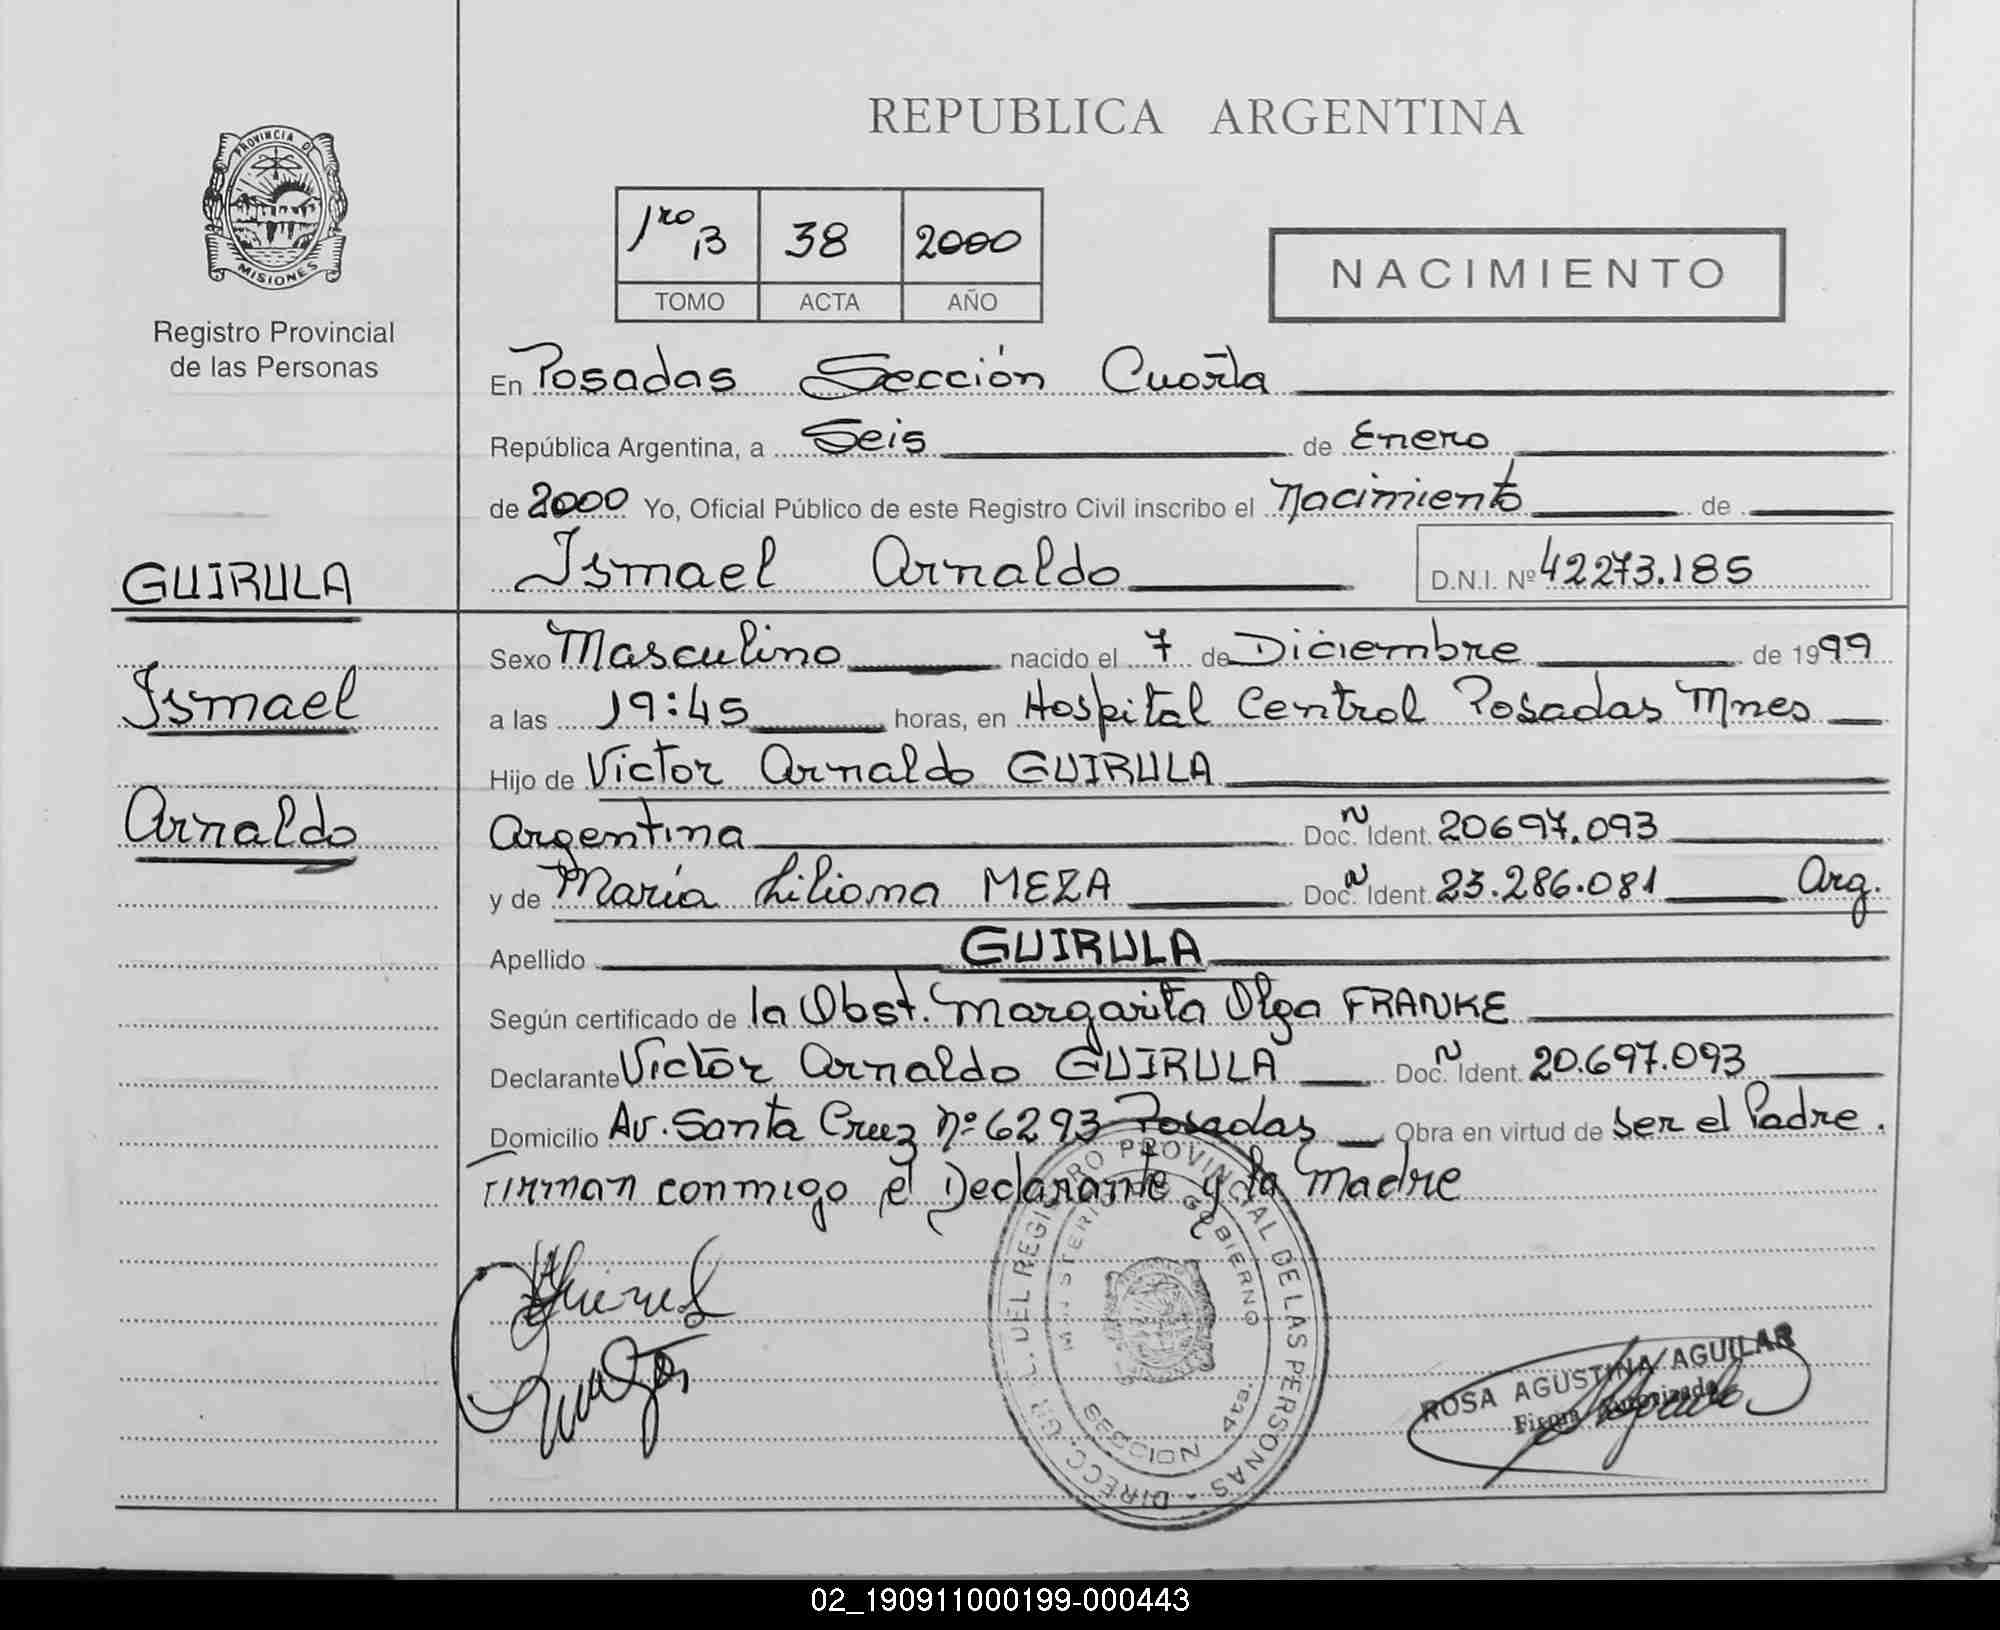 REPUBLICA ARGENTINA
PROVINCIA DE
MISIONES
Registro Provincial
de las Personas
1ro B 38 2000
TOMO ACTA AÑO
NACIMIENTO
En Posadas Sección Cuarta
República Argentina, a Seis de Enero
de 2000 Yo, Oficial Público de este Registro Civil inscribo el Nacimiento de
Ismael Arnaldo D.N.I. Nº 42273.185
GUIRULA
Ismael
Arnaldo
Sexo Masculino nacido el 7 de Diciembre de 1999
a las 19:45 horas, en Hospital Central Posadas Mnes
Hijo de Victor Arnaldo GUIRULA
Argentina Doc. Ident. 20697.093
y de María Liliana MEZA Doc. Ident. 23.286.081 Arg.
Apellido GUIRULA
Según certificado de la Obst. Margarita Olga FRANKE
Declarante Victor Arnaldo GUIRULA Doc. Ident. 20.697.093
Domicilio Av. Santa Cruz nº 6293 Posadas Obra en virtud de ser el Padre.
Firman conmigo el Declarante y la Madre
DIRECC. GRAL. DEL REGISTRO PROVINCIAL DE LAS PERSONAS
MINISTERIO DE GOBIERNO
SECCION 4ta.
ROSA AGUSTINA AGUILAR
Firma Autorizada
02_190911000199-000443